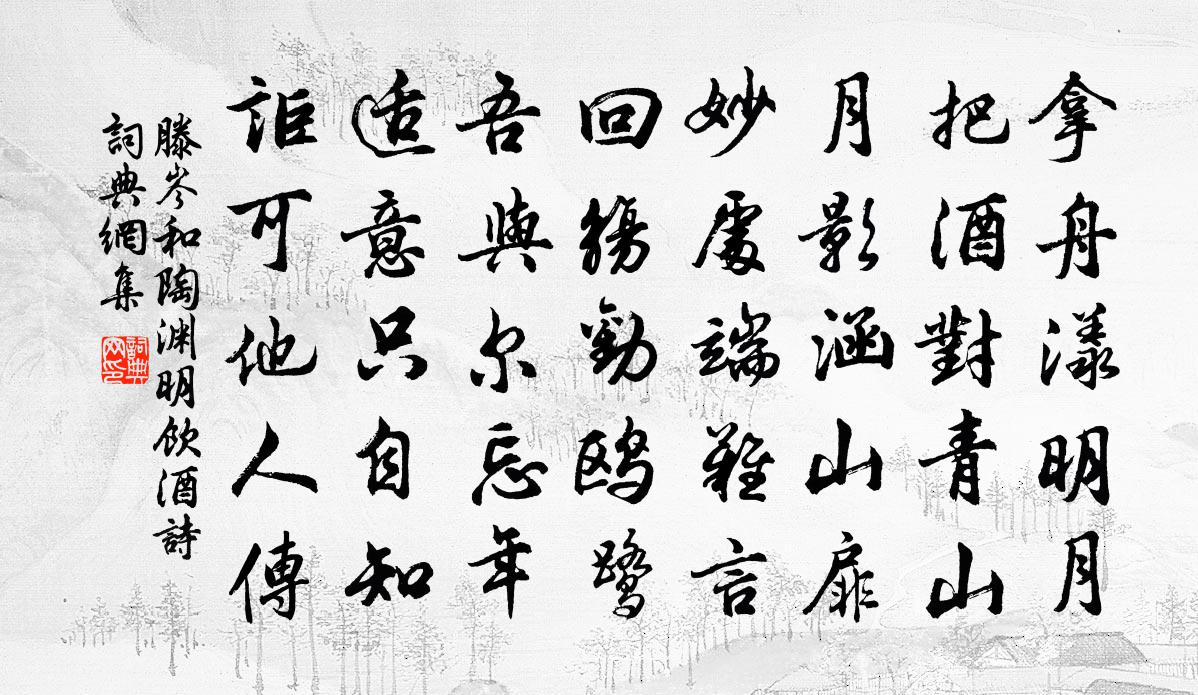 拿舟漾明月
把酒對青山
月影涵山扉
妙處端難言
回觴勸鷗鷺
吾與尔忘年
适意只自知
詎可他人傳
滕岑和陶渊明飲酒詩
詞典網集
詞典网印